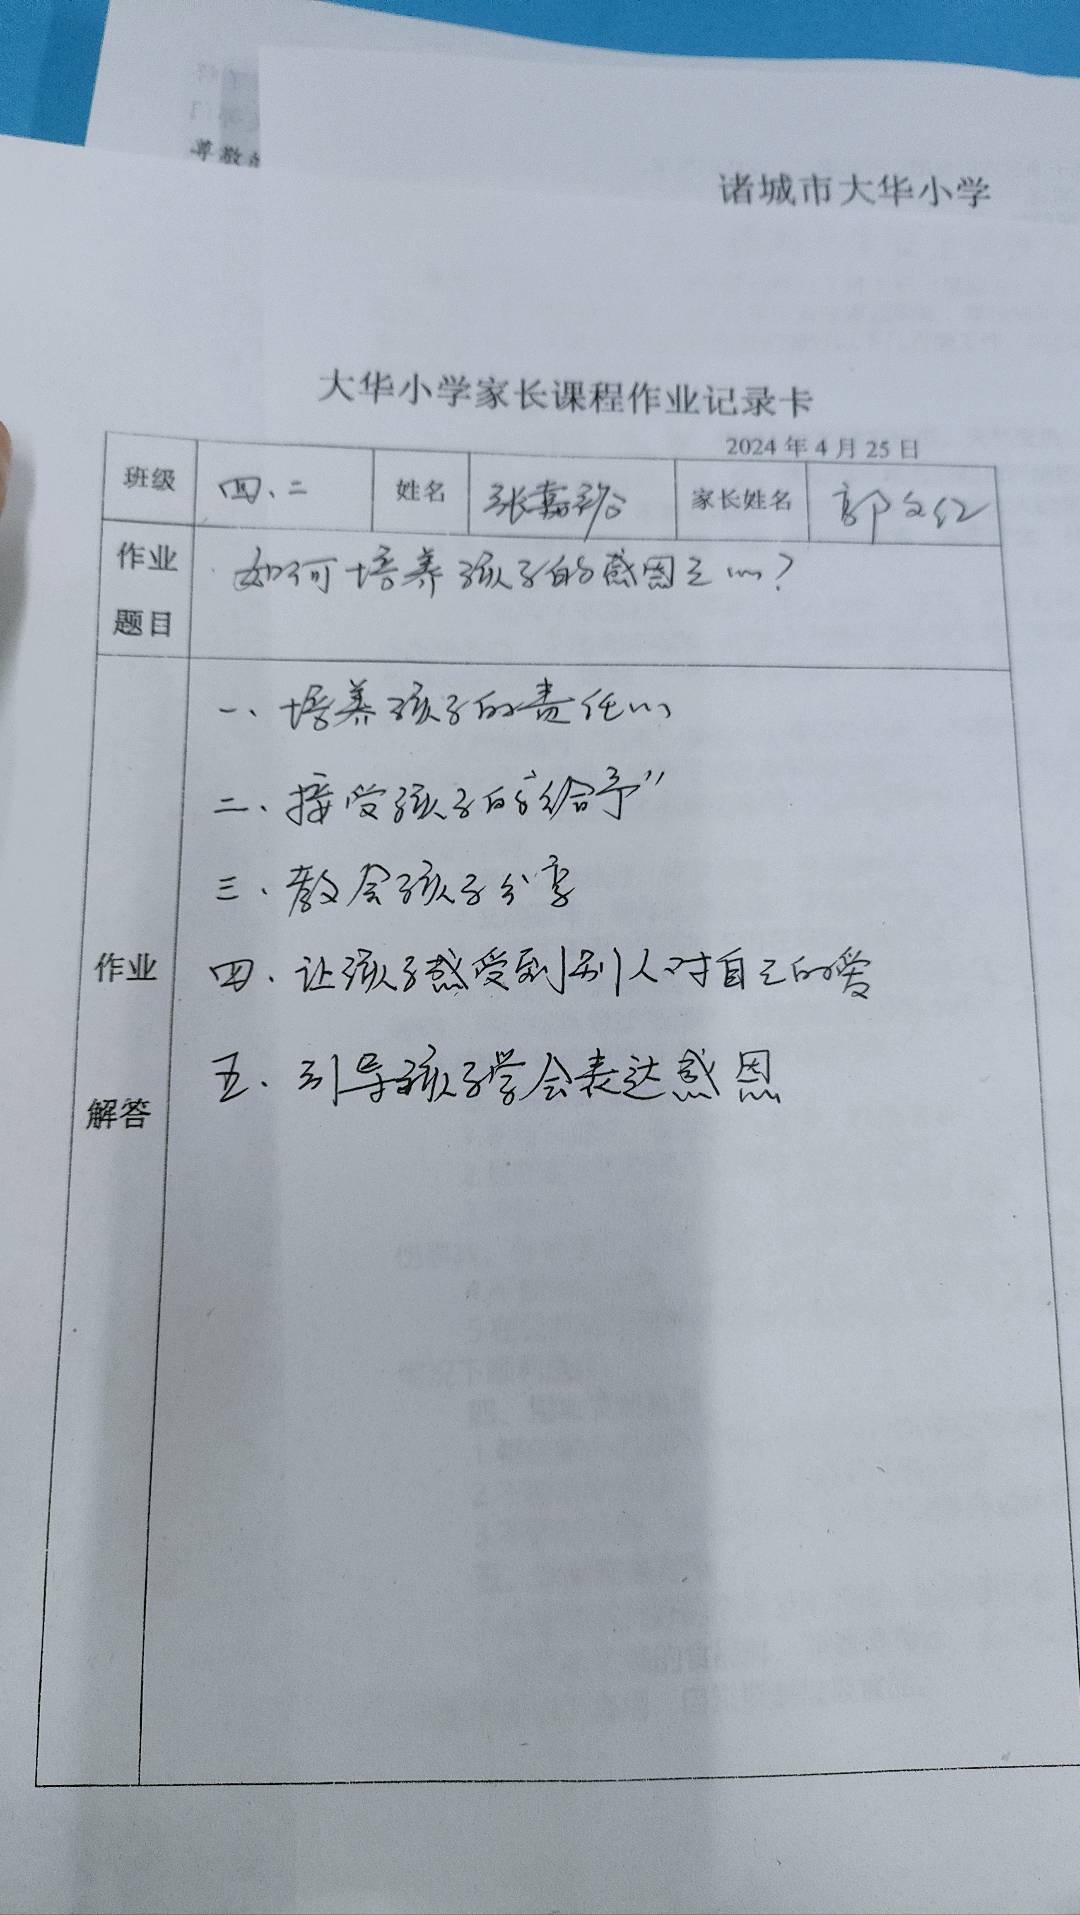 尊敬
诸城市大华小学
大华小学家长课程作业记录卡
2024年4月25日
班级 四、二 姓名 张嘉 家长姓名 郭文红
作业题目 如何培养孩子的感恩之心?
作业解答
一、培养孩子的责任心
二、接受孩子的“给予”
三、教会孩子分享
四、让孩子感受到别人对自己的爱
五、引导孩子学会表达感恩